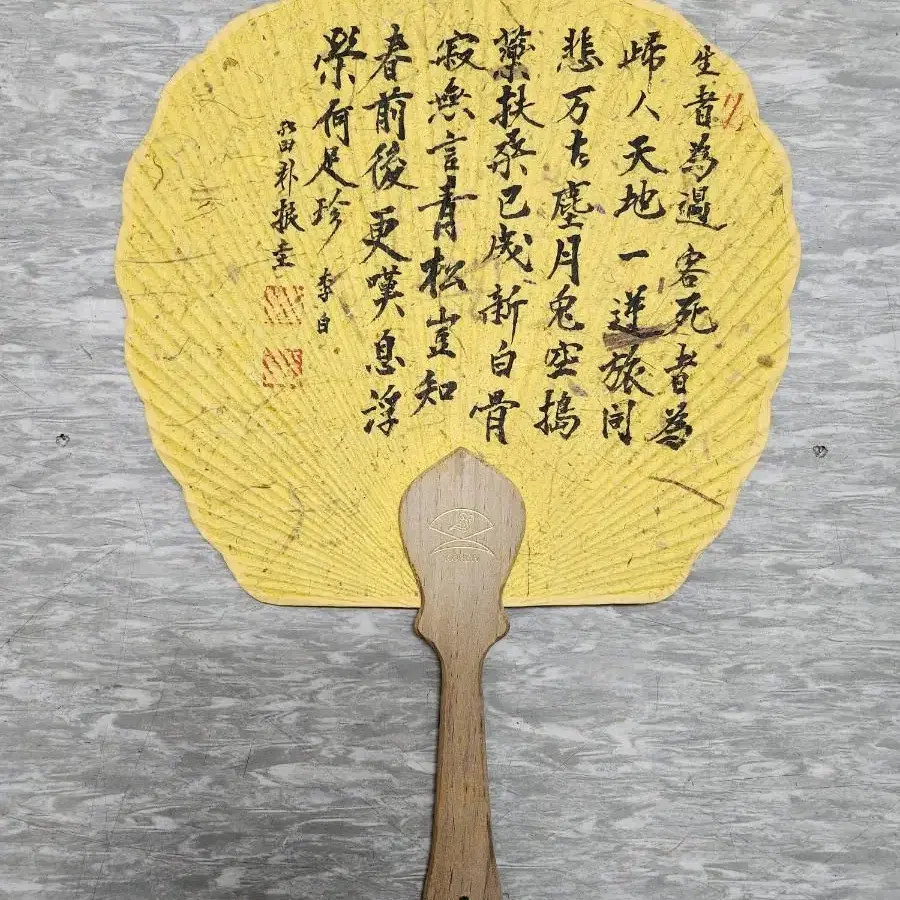 生者為過客死者為
歸人天地一逆旅同
悲万古塵月兔空搗
藥扶桑已成新白骨
寂無言青松豈知
春前後更嘆息浮
榮何足珍
李白
田朴振圭